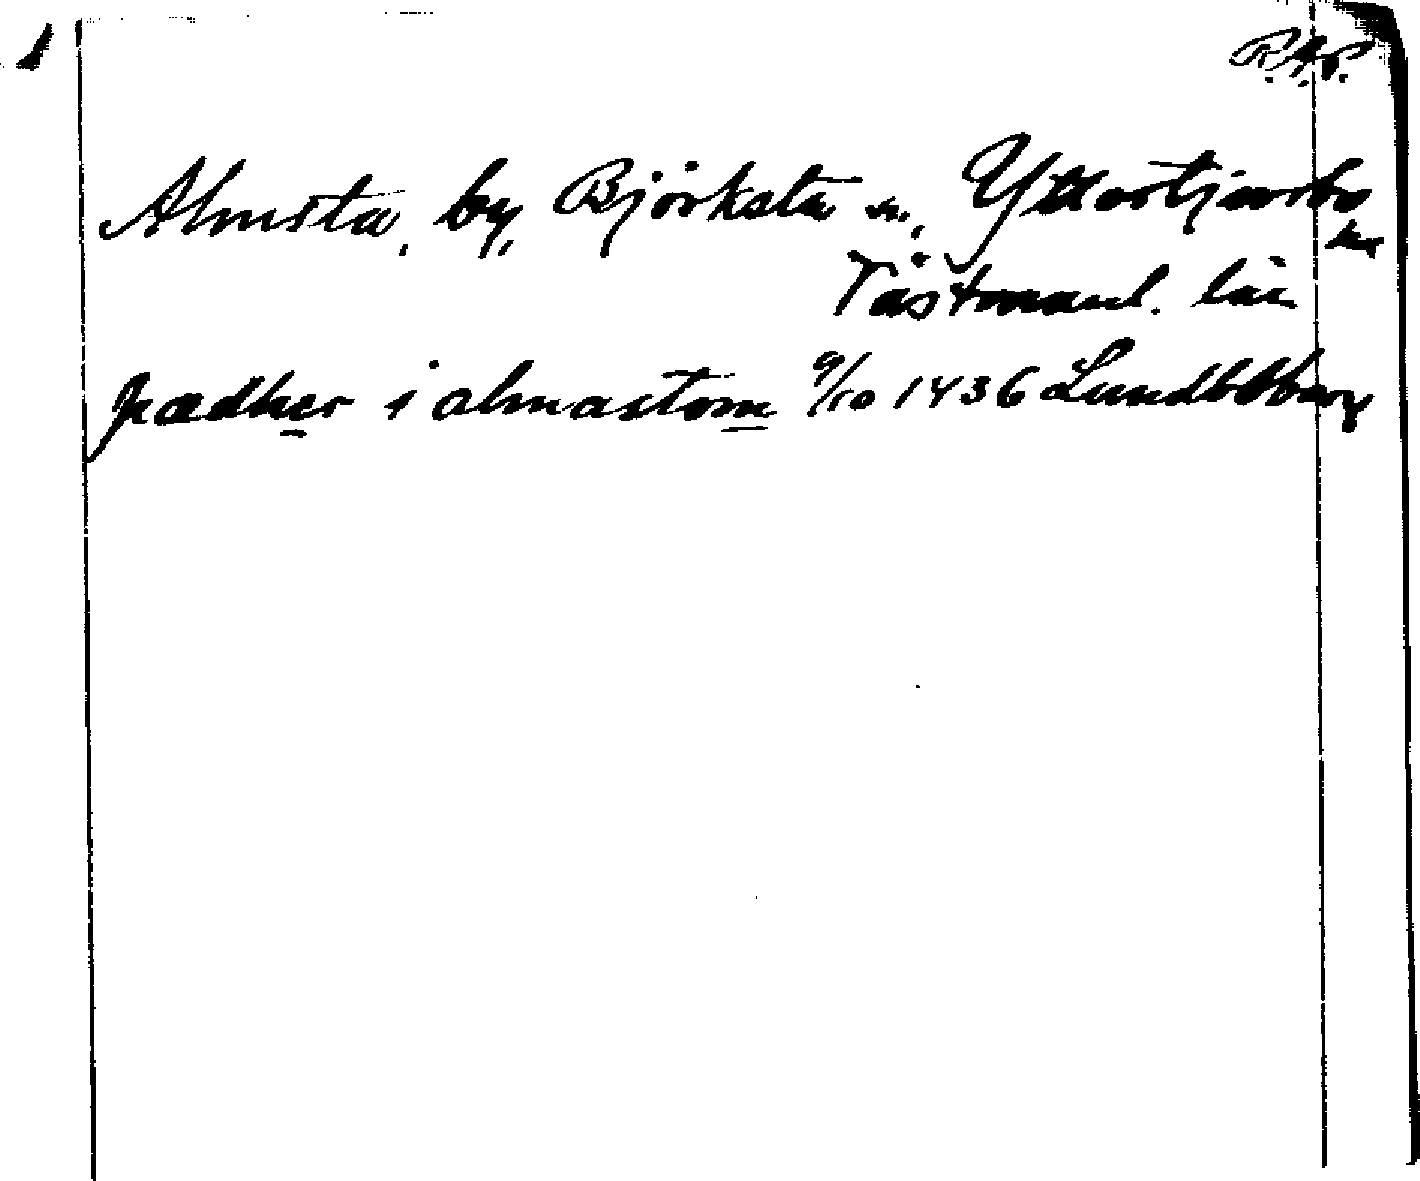 R.A.P.
Almsta, by, Björksta sn, Yttertjurbo
hd
Västmanl. län
pædher i almastom 9/10 1436 Lundbbberg